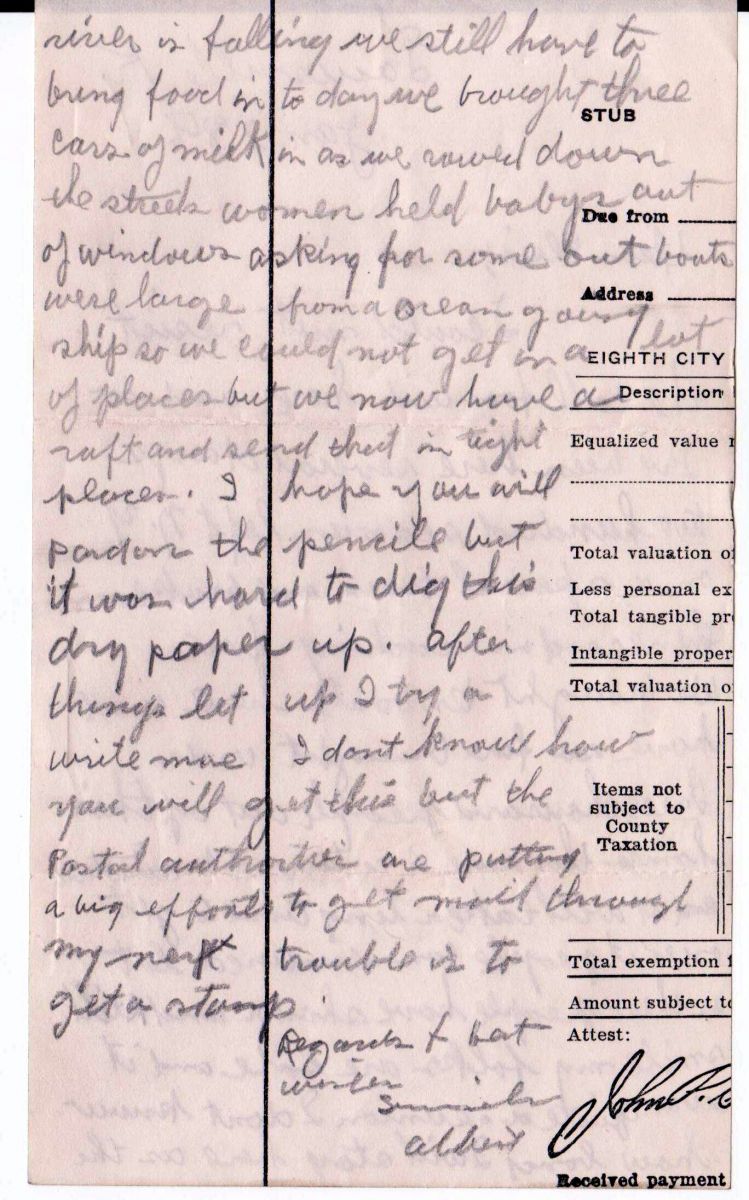 river is falling we still have to
bring food in to day we brought three
cars of milk in as we rowed down
the streets women held babys out
of windows asking for some out boats
were large from a ocean going
ship so we could not get in a lot
of places but we now have a
raft and send that in tight
places. I hope you will
pardon the pencile but
it was hard to dig this
dry paper up. after
things let up I try a
write mae I dont know how
you will get this but the
Postal authorties are putting
a big efforts to get mail through
my next trouble is to
get a stamp.
Regards & best
wishes
Albert
STUB
Due from
Address
EIGHTH CITY
Description
Equalized value
Total valuation of
Less personal ex
Total tangible pr
Intangible proper
Total valuation o
Items not
subject to
County
Taxation
Total exemption
Amount subject to
Attest:
John
Received payment